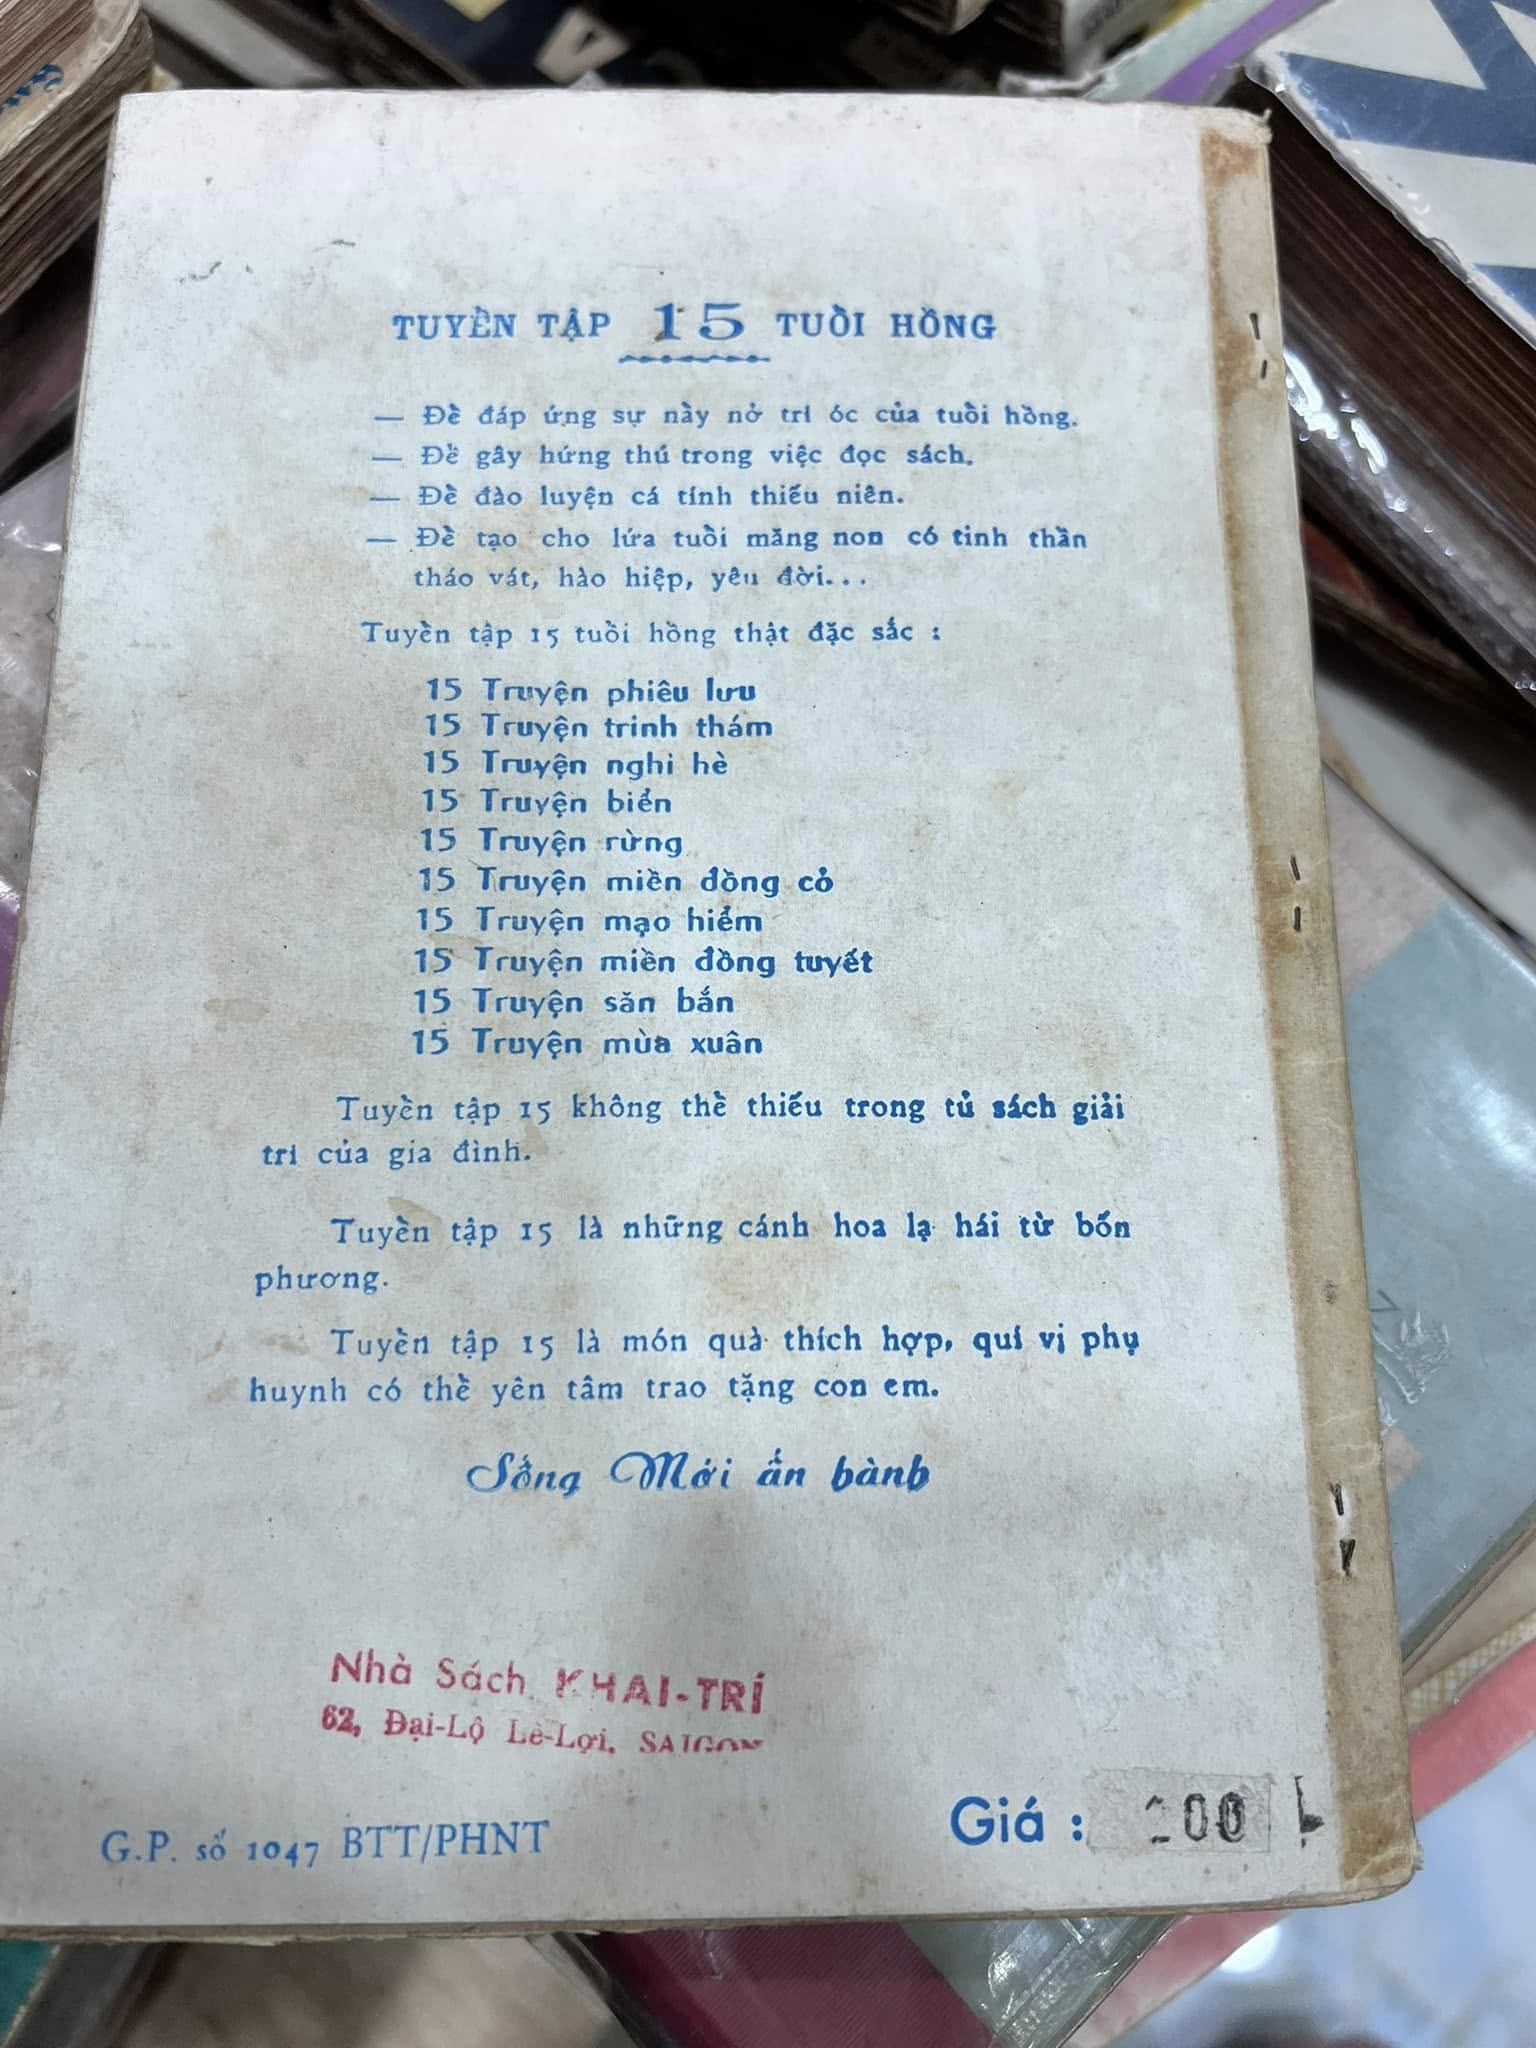 TUYỂN TẬP 15 TUỔI HỒNG
— Để đáp ứng sự nẩy nở trí óc của tuổi hồng.
— Để gây hứng thú trong việc đọc sách.
— Để đào luyện cá tính thiếu niên.
— Để tạo cho lứa tuổi măng non có tinh thần
tháo vát, hào hiệp, yêu đời...
Tuyển tập 15 tuổi hồng thật đặc sắc :
15 Truyện phiêu lưu
15 Truyện trinh thám
15 Truyện nghỉ hè
15 Truyện biển
15 Truyện rừng
15 Truyện miền đồng cỏ
15 Truyện mạo hiểm
15 Truyện miền đồng tuyết
15 Truyện săn bắn
15 Truyện mùa xuân
Tuyển tập 15 không thể thiếu trong tủ sách giải
trí của gia đình.
Tuyển tập 15 là những cánh hoa lạ hái từ bốn
phương.
Tuyển tập 15 là món quà thích hợp, quí vị phụ
huynh có thể yên tâm trao tặng con em.
Sống Mới ấn hành
Nhà Sách KHAI-TRÍ
62, Đại-Lộ Lê-Lợi, SAIGON
G.P. số 1047 BTT/PHNT
Giá :